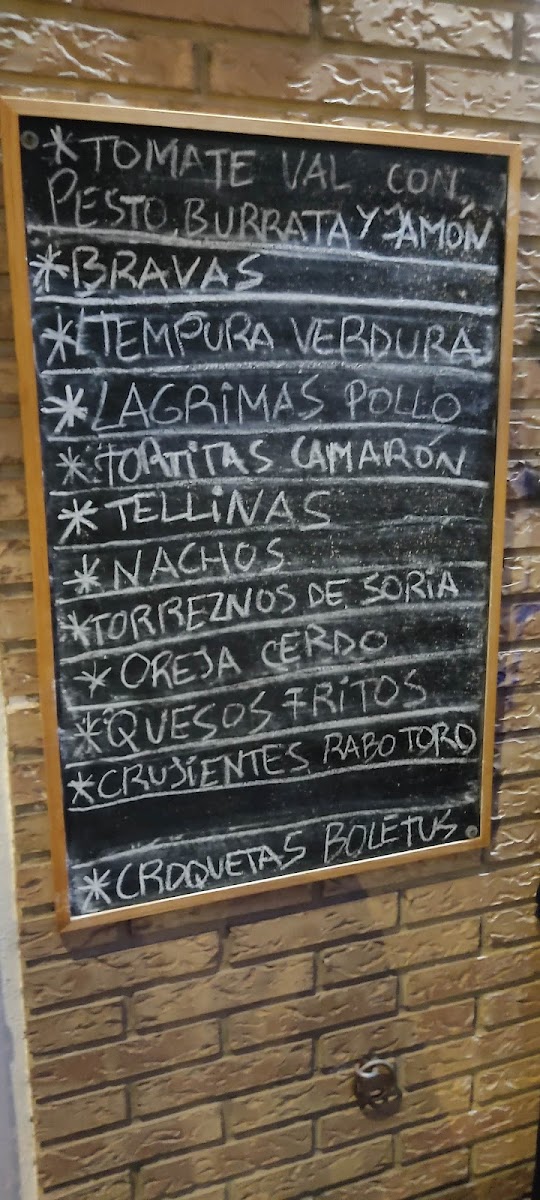 *TOMATE VAL CON
PESTO, BURRATA Y JAMÓN
*BRAVAS
*TEMPURA VERDURA
*LAGRIMAS POLLO
*TORTITAS CAMARÓN
*TELLINAS
*NACHOS
*TORREZNOS DE SORIA
*OREJA CERDO
*QUESOS FRITOS
*CRUJIENTES RABO TORO
*CROQUETAS BOLETUS